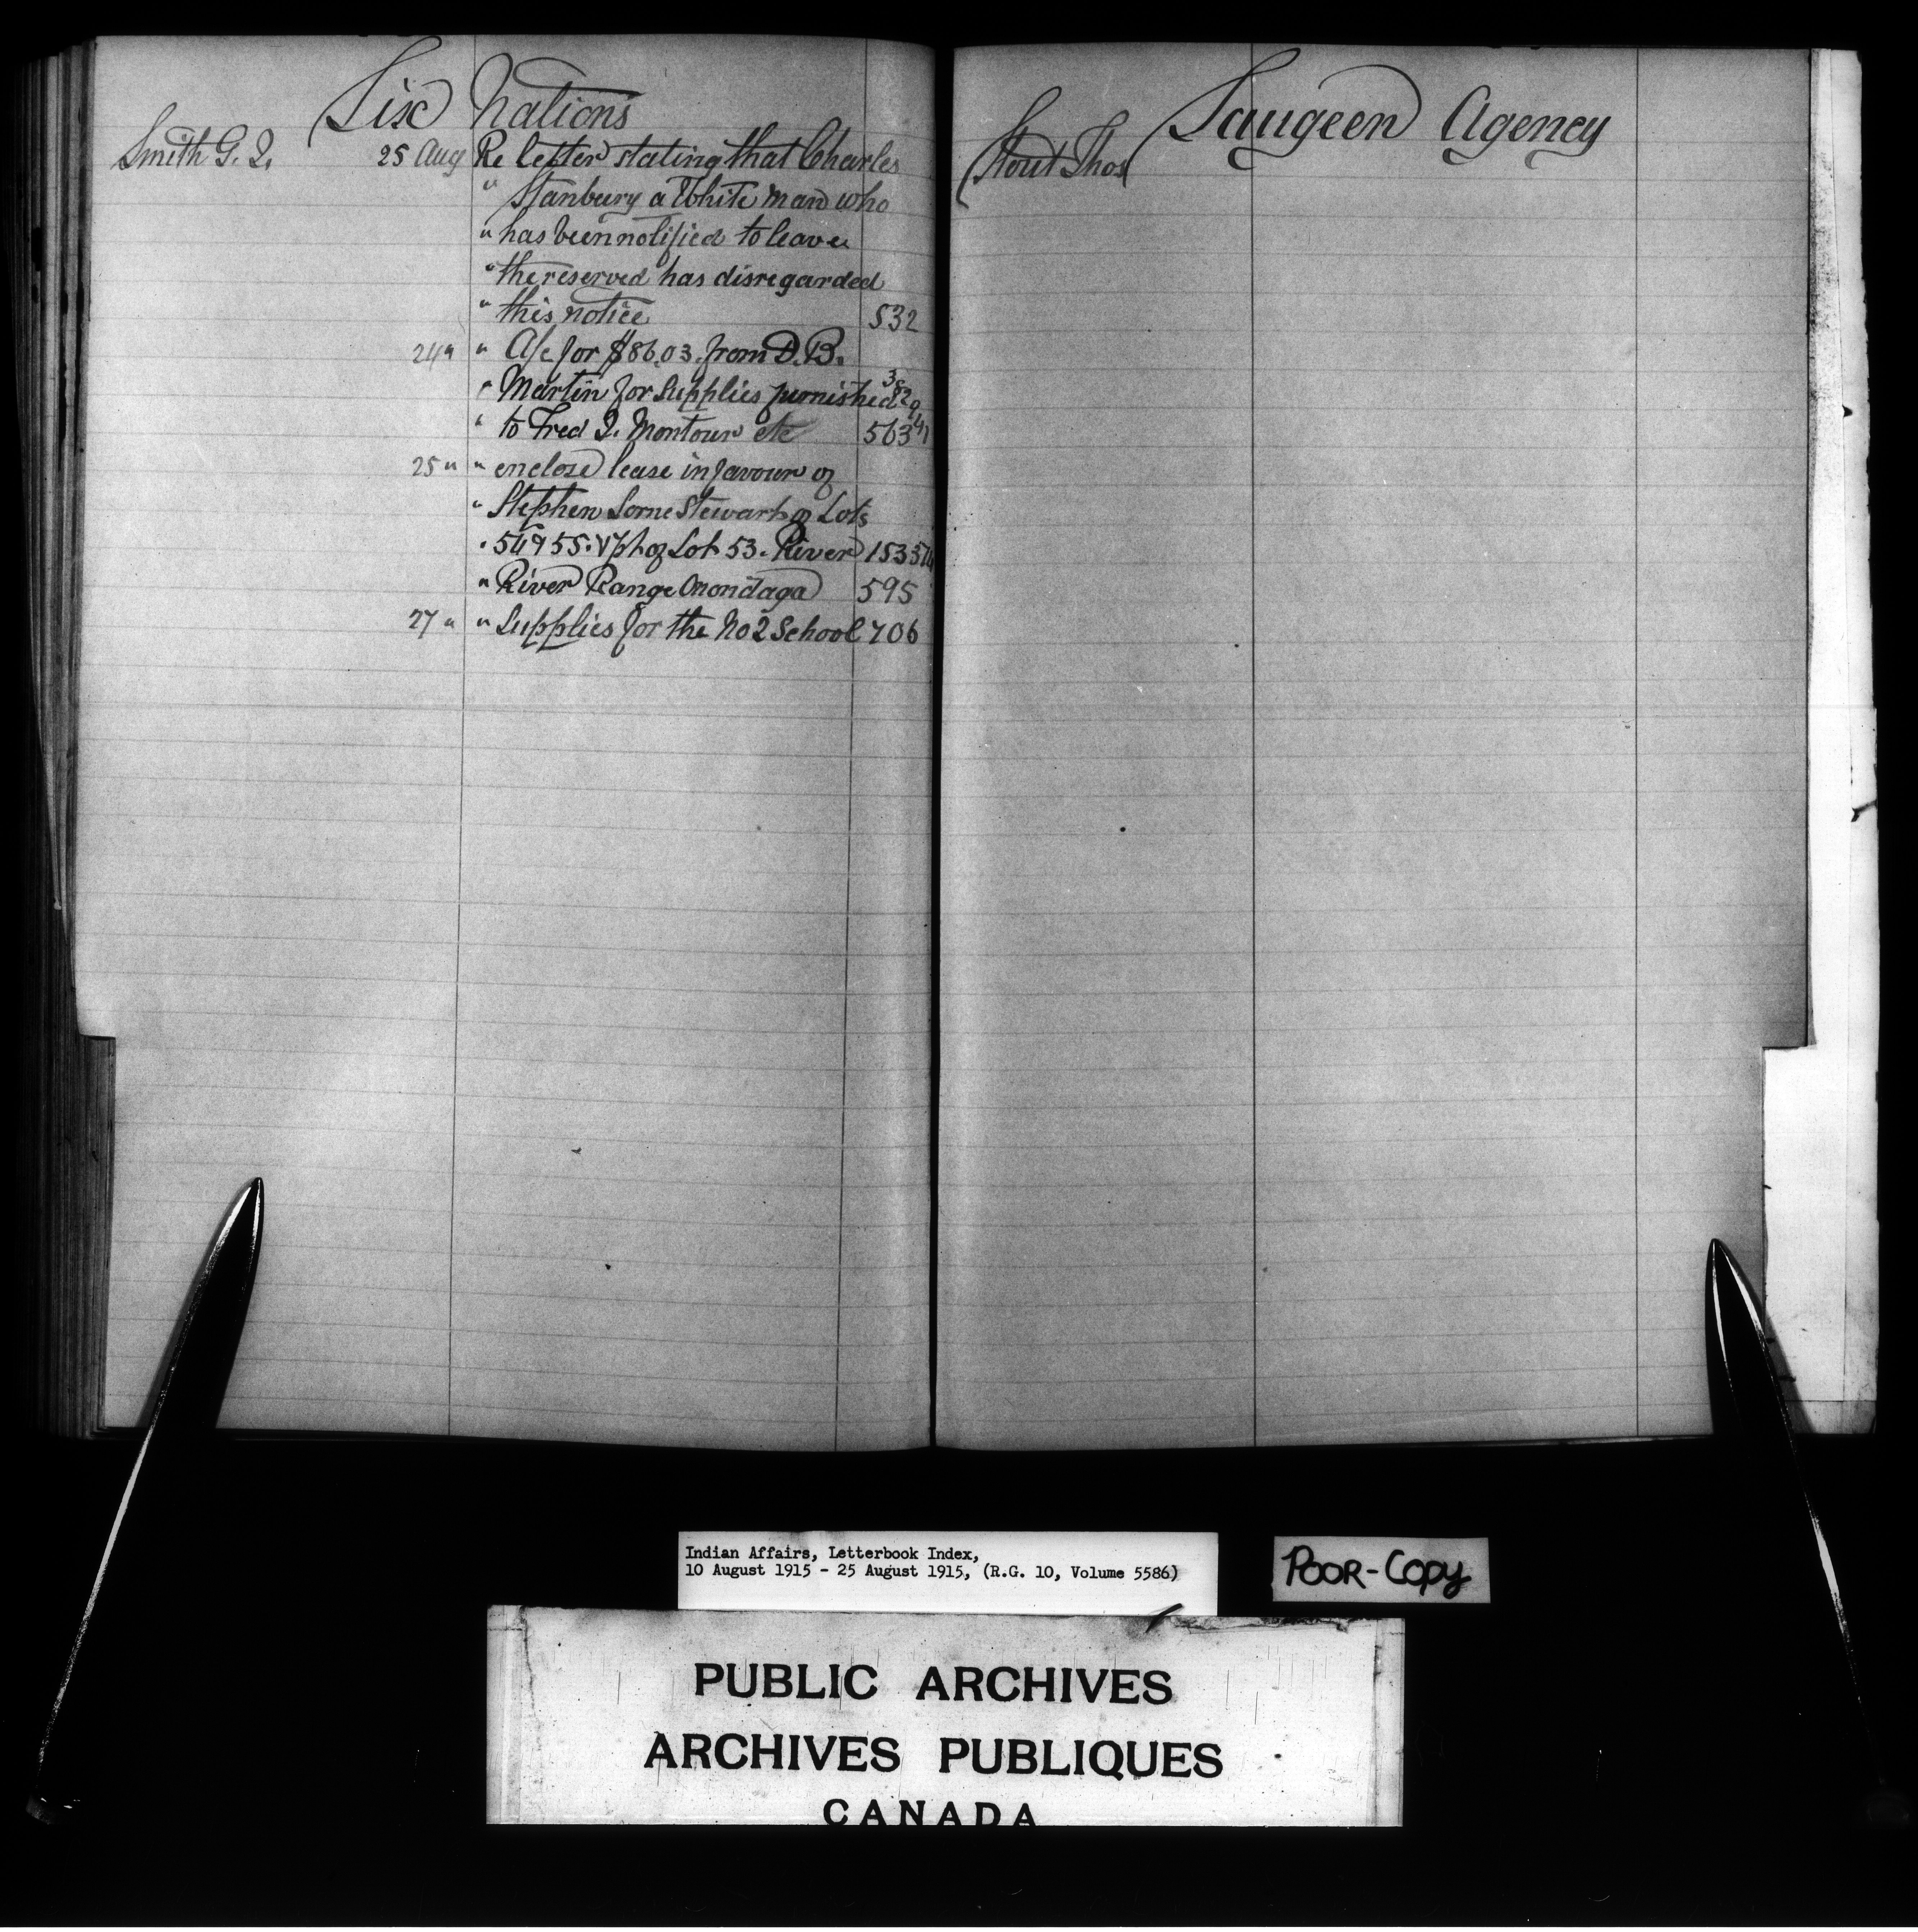 Six Nations
Smith G. J. 25 Aug Re letter stating that Charles
" Stanbury a White man who
" has been notified to leave
" the reserved has disregarded
" this notice 532
24 " " A/c for $86.03. from D. B.
" Martin for Supplies purnished
" to Fred J. Montour etc 563
25 " " enclose lease in favour of
" Stephen Lorne Stewart of Lots
" 54 & 55. & pt of Lot 53. River 153
" River Range Onondaga 595
27 " " Supplies for the No 2 School 706
Saugeen Agency
Stout Thos
Indian Affairs, Letterbook Index,
10 August 1915 - 25 August 1915, (R.G. 10, Volume 5586)
POOR-COPY
PUBLIC ARCHIVES
ARCHIVES PUBLIQUES
CANADA